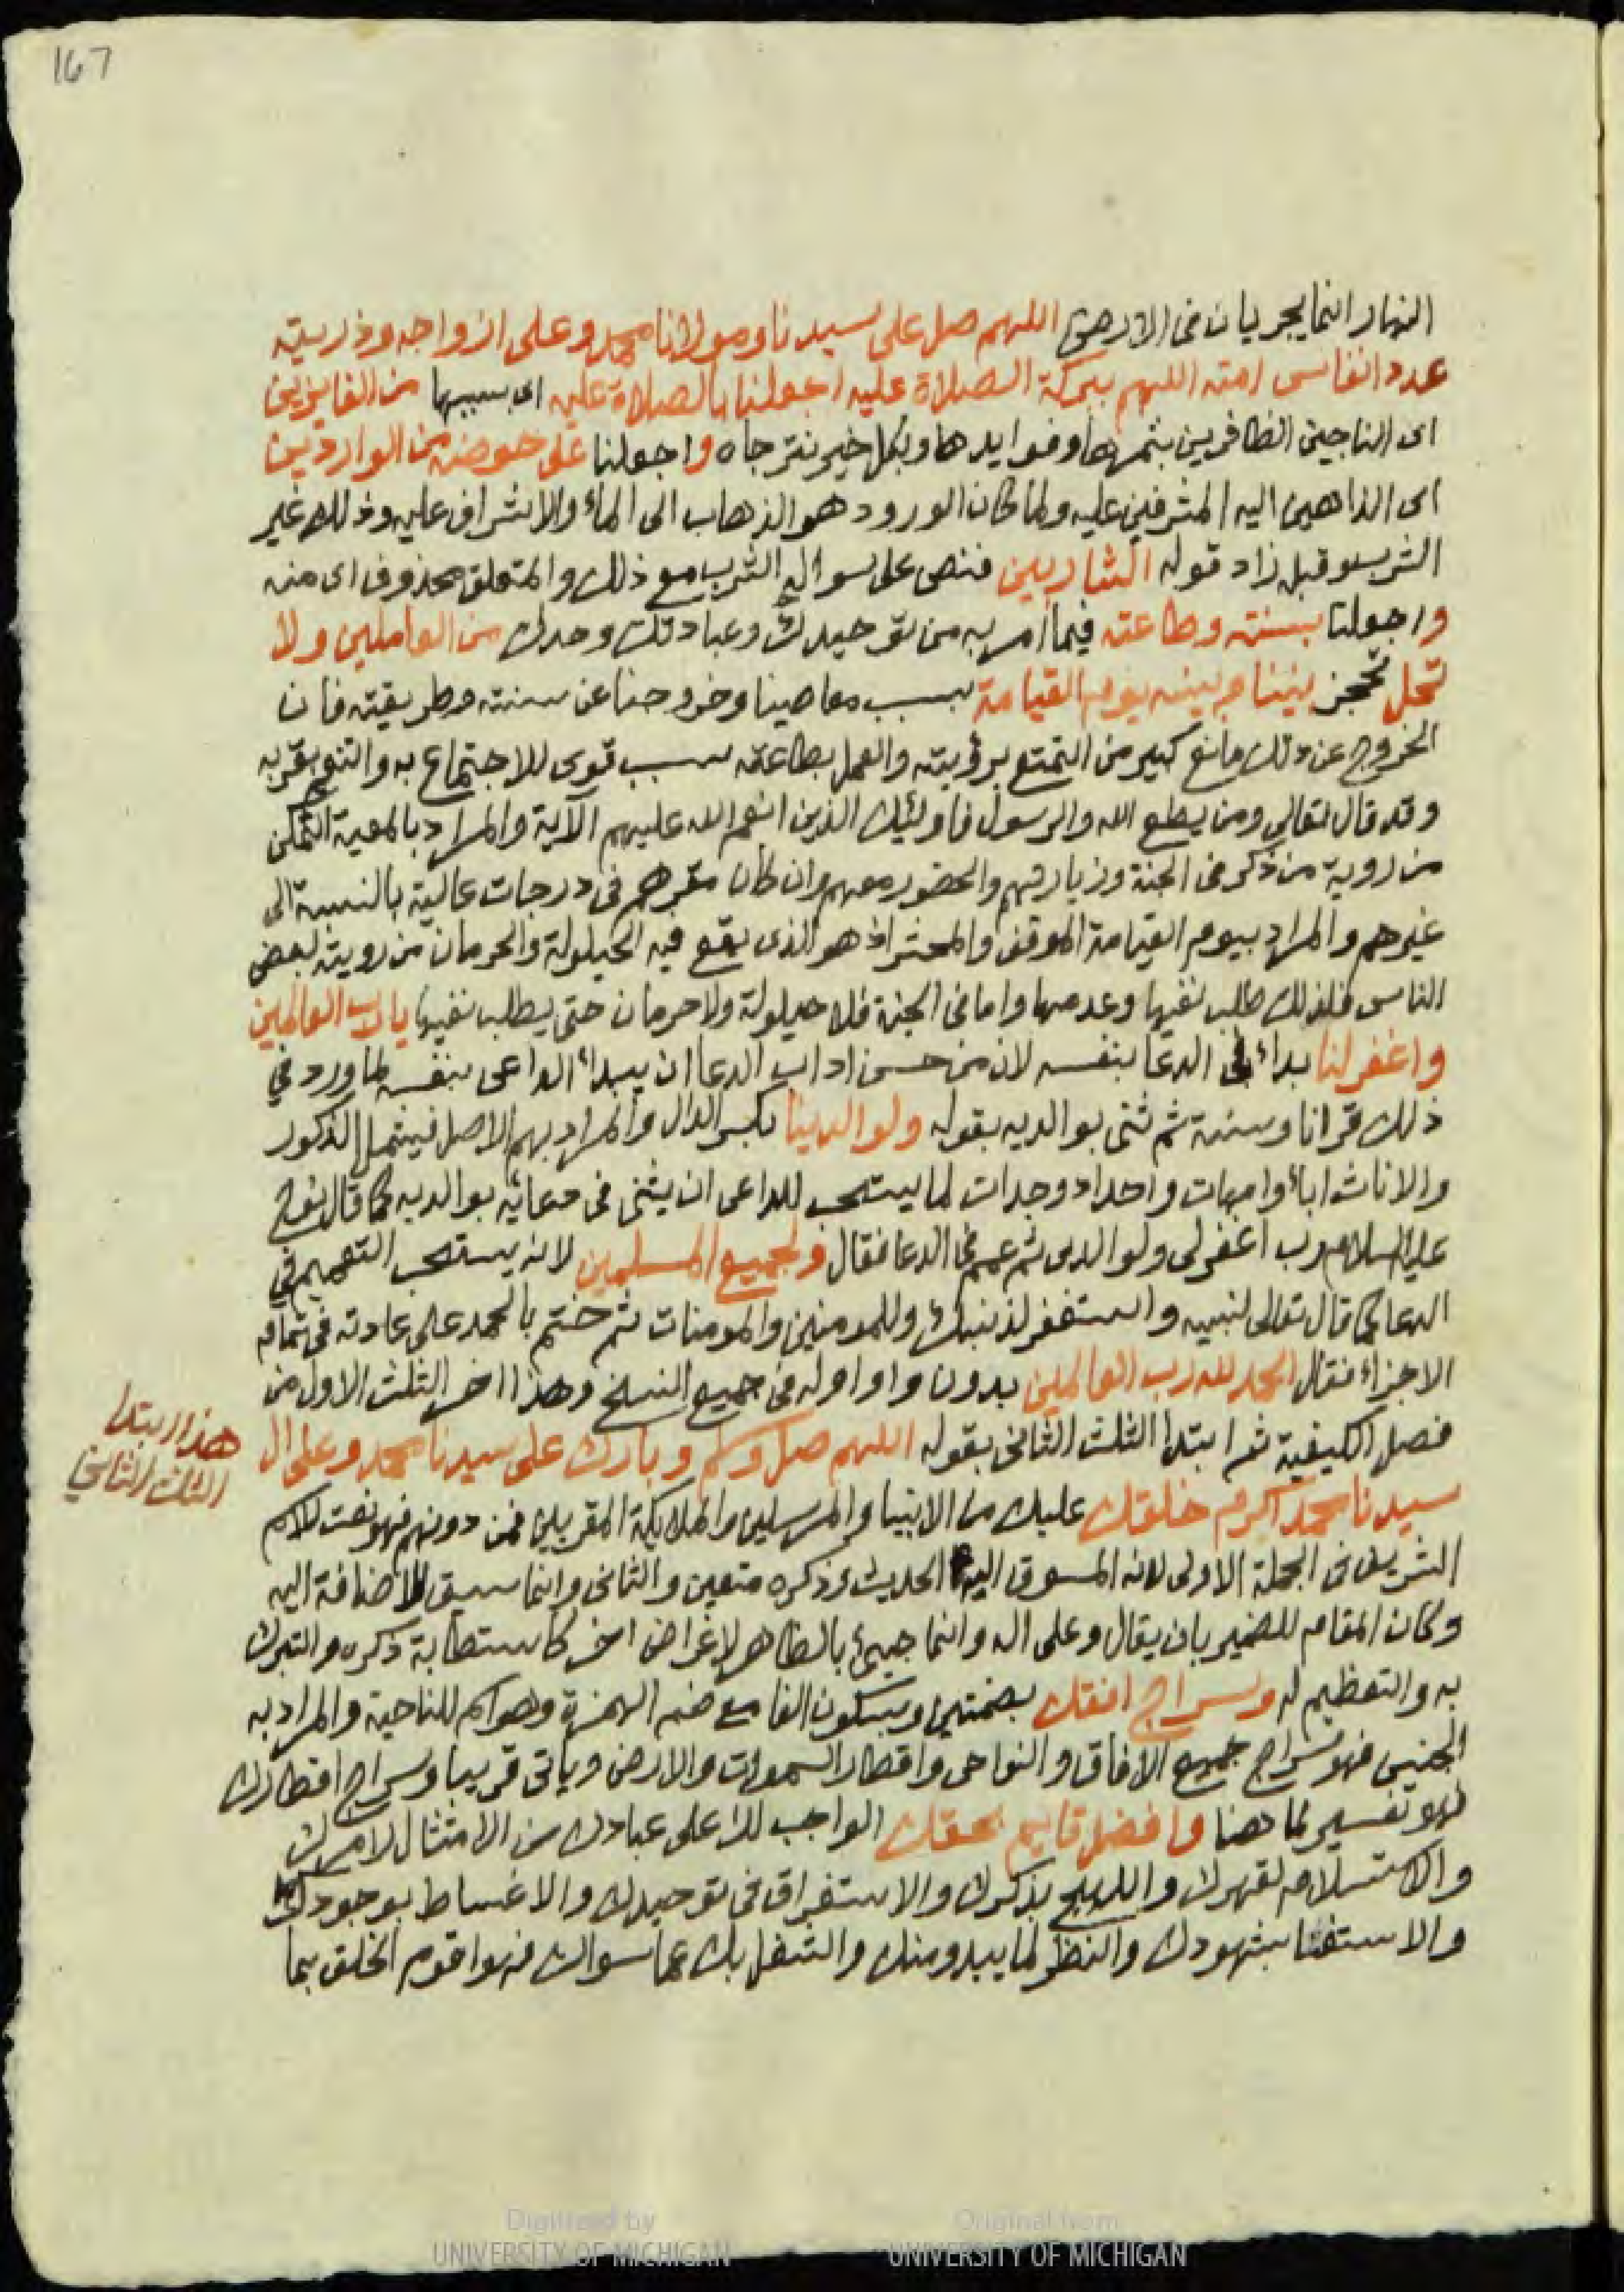 167
النهار انما يجريان فى الارض اللهم صل على سيدنا ومولانا محمد وعلى ازواجه وذريته
عدد انفاس امته اللهم ببركة الصلاة عليه اجعلنا بالصلاة عليه اى بسببها من الفايزين
اى الناجين الظافرين بثمرها وفوايدها وبكل خير نترجاه واجعلنا على حوضه من الواردين
اى الذاهبين اليه المشرفين عليه ولما كان الورود هو الذهاب الى الماء والاشراف عليه وذلك غير
الشرب وقبل زاد قوله الشاربين فنص على سواله الشرب مع ذلك والمتعلق محذوف اى منه
واجعلنا بسنته وطاعته فيما أمر به من توحيدك وعبادتك وحدك من العاملين ولا
تحل تحجز بيننا وبينه يوم القيامة بسبب معاصينا وخروجنا عن سنته وطريقته فان
الخروج عن ذلك مانع كبير من التمتع برؤيته والعمل بطاعته سبب قوى للاجتماع به والتنعم بقربه
وقد قال تعالى ومن يطع الله والرسول فاوليك الذين انعم الله عليهم الآية والمراد بالمعية التمكن
من روية من ذكر فى الجنة وزيارتهم والحضور معهم وان كان مقرهم فى درجات عالية بالنسبة الى
غيرهم والمراد بيوم القيامة الموقف والمحشر اذ هو الذى يقع فيه الحيلولة والحرمان من رويته لبعض
الناس فلذلك طلب نفيها وعدمها واما فى الجنة فلا حيلولة ولا حرمان حتى يطلب نفيها يا رب العالمين
واغفر لنا بدأ فى الدعا بنفسه لان من حسن اداب الدعا ان يبدأ الداعى بنفسه لما ورد في
ذلك قرانا وسنة ثم ثنى بوالديه بقوله ولوالدينا بكسر الدال والمراد بهم الاصل فيشمل الذكور
والاناث اباء وامهات واجداد وجدات لما يستحب للداعى ان يثنى فى دعائه بوالديه كما قال نوح
عليه السلام رب اغفر لى ولوالدى ثم عمم فى الدعا فقال ولجميع المسلمين لانه يستحب التعميم في
الدعا كما قال تعالى لنبيه واستغفر لذنبك وللمومنين والمومنات ثم ختم بالحمد على عادته فى تمام
الاجزاء فقال الحمد لله رب العالمين بدون واو اوله فى جميع النسخ وهذا اخر الثلث الاول من
فصل الكيفية ثم ابتدا الثلث الثانى بقوله اللهم صل وسلم وبارك على سيدنا محمد وعلى ال
هذا ابتدا
الثلث الثاني
سيدنا محمد اكرم خلقك عليك من الانبيا والمرسلين والملايكة المقربين فمن دونهم فهو نعت للاسم
الشريف فى الجملة الاولى لانه المسوق اليه الحديث وذكره متعين والثانى وانما سيق للاضافة اليه
وكان المقام للضمير بان يقال وعلى اله وانما جيئ بالظاهر لاغراض اخر كاستطابة ذكره والتبرك
به والتعظيم له وسراج افقك بضمتين وبسكون الفا مع ضم الهمزة وهو اسم للناحية والمراد به
الجنس فهو سراج جميع الافاق والنواحى واقطار السموات والارض وياتى قريبا وسراج اقطارك
فهو تفسير لما هنا وافضل قايم بحقك الواجب لك على عبادك من الامتثال لامرك
والاستسلام لقهرك واللهج بذكرك والاستغراق فى توحيدك والاغتباط بوجودك
والاستغنا بشهودك والنظر لما يبدو منك والشغل بك عما سواك فهو اقوم الخلق بما
Digitized by
UNIVERSITY OF MICHIGAN
Original from
UNIVERSITY OF MICHIGAN